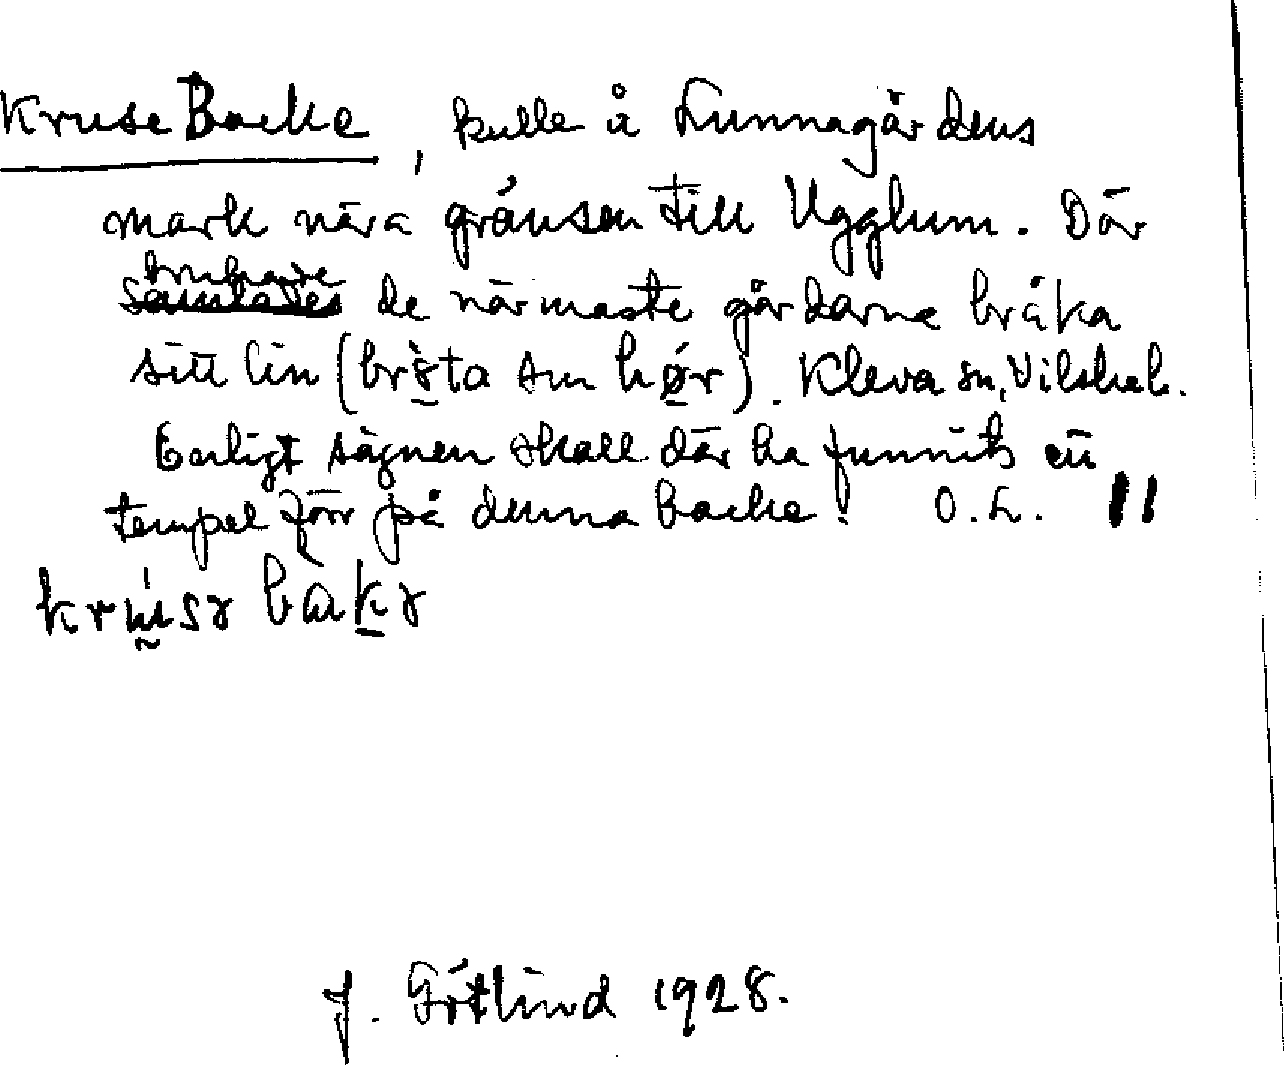 Kruse Backe, kulle å Lunnagårdens
mark nära gränsen till Ugglum. Där
brukade
samlades de närmaste gårdarne bråka
sitt lin (brøta hør). Kleva sn, Vilske h.
Enligt sägnen skall där ha funnits ett
tempel förr på denna backe! O. L. 11
J. Götlind 1928.